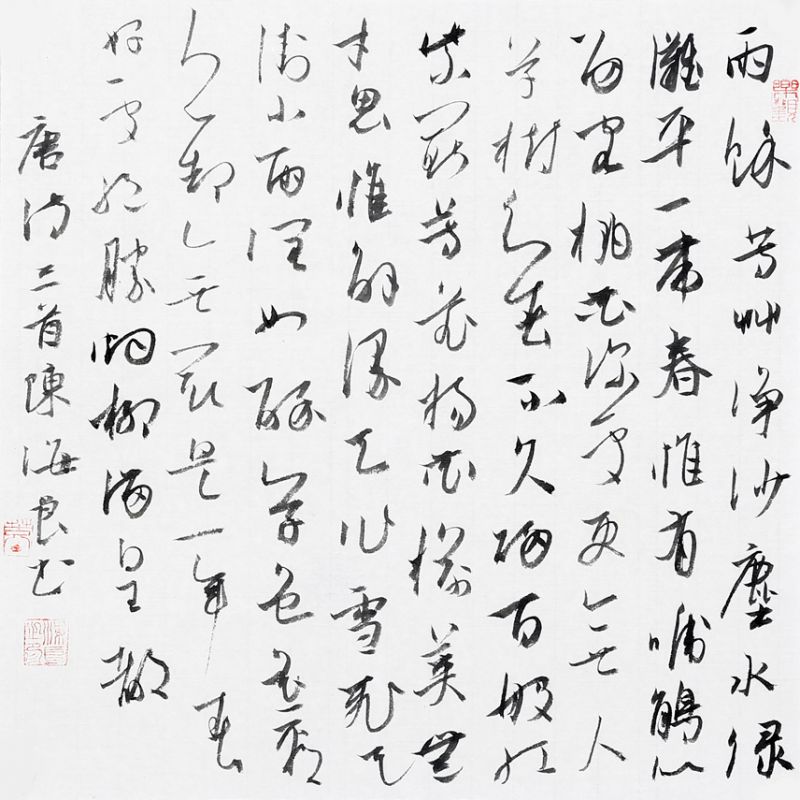 雨餘芳艸净沙塵水绿
灘平一帶春惟有啼鵑似
留客桃花深處更無人
草樹知春不久歸百般紅
紫鬥芳菲楊花榆莢無
才思惟解漫天作雪飛天
街小雨潤如酥草色遙看
近却無最是一年春
好處絕勝烟柳滿皇都
唐诗三首陳海良书